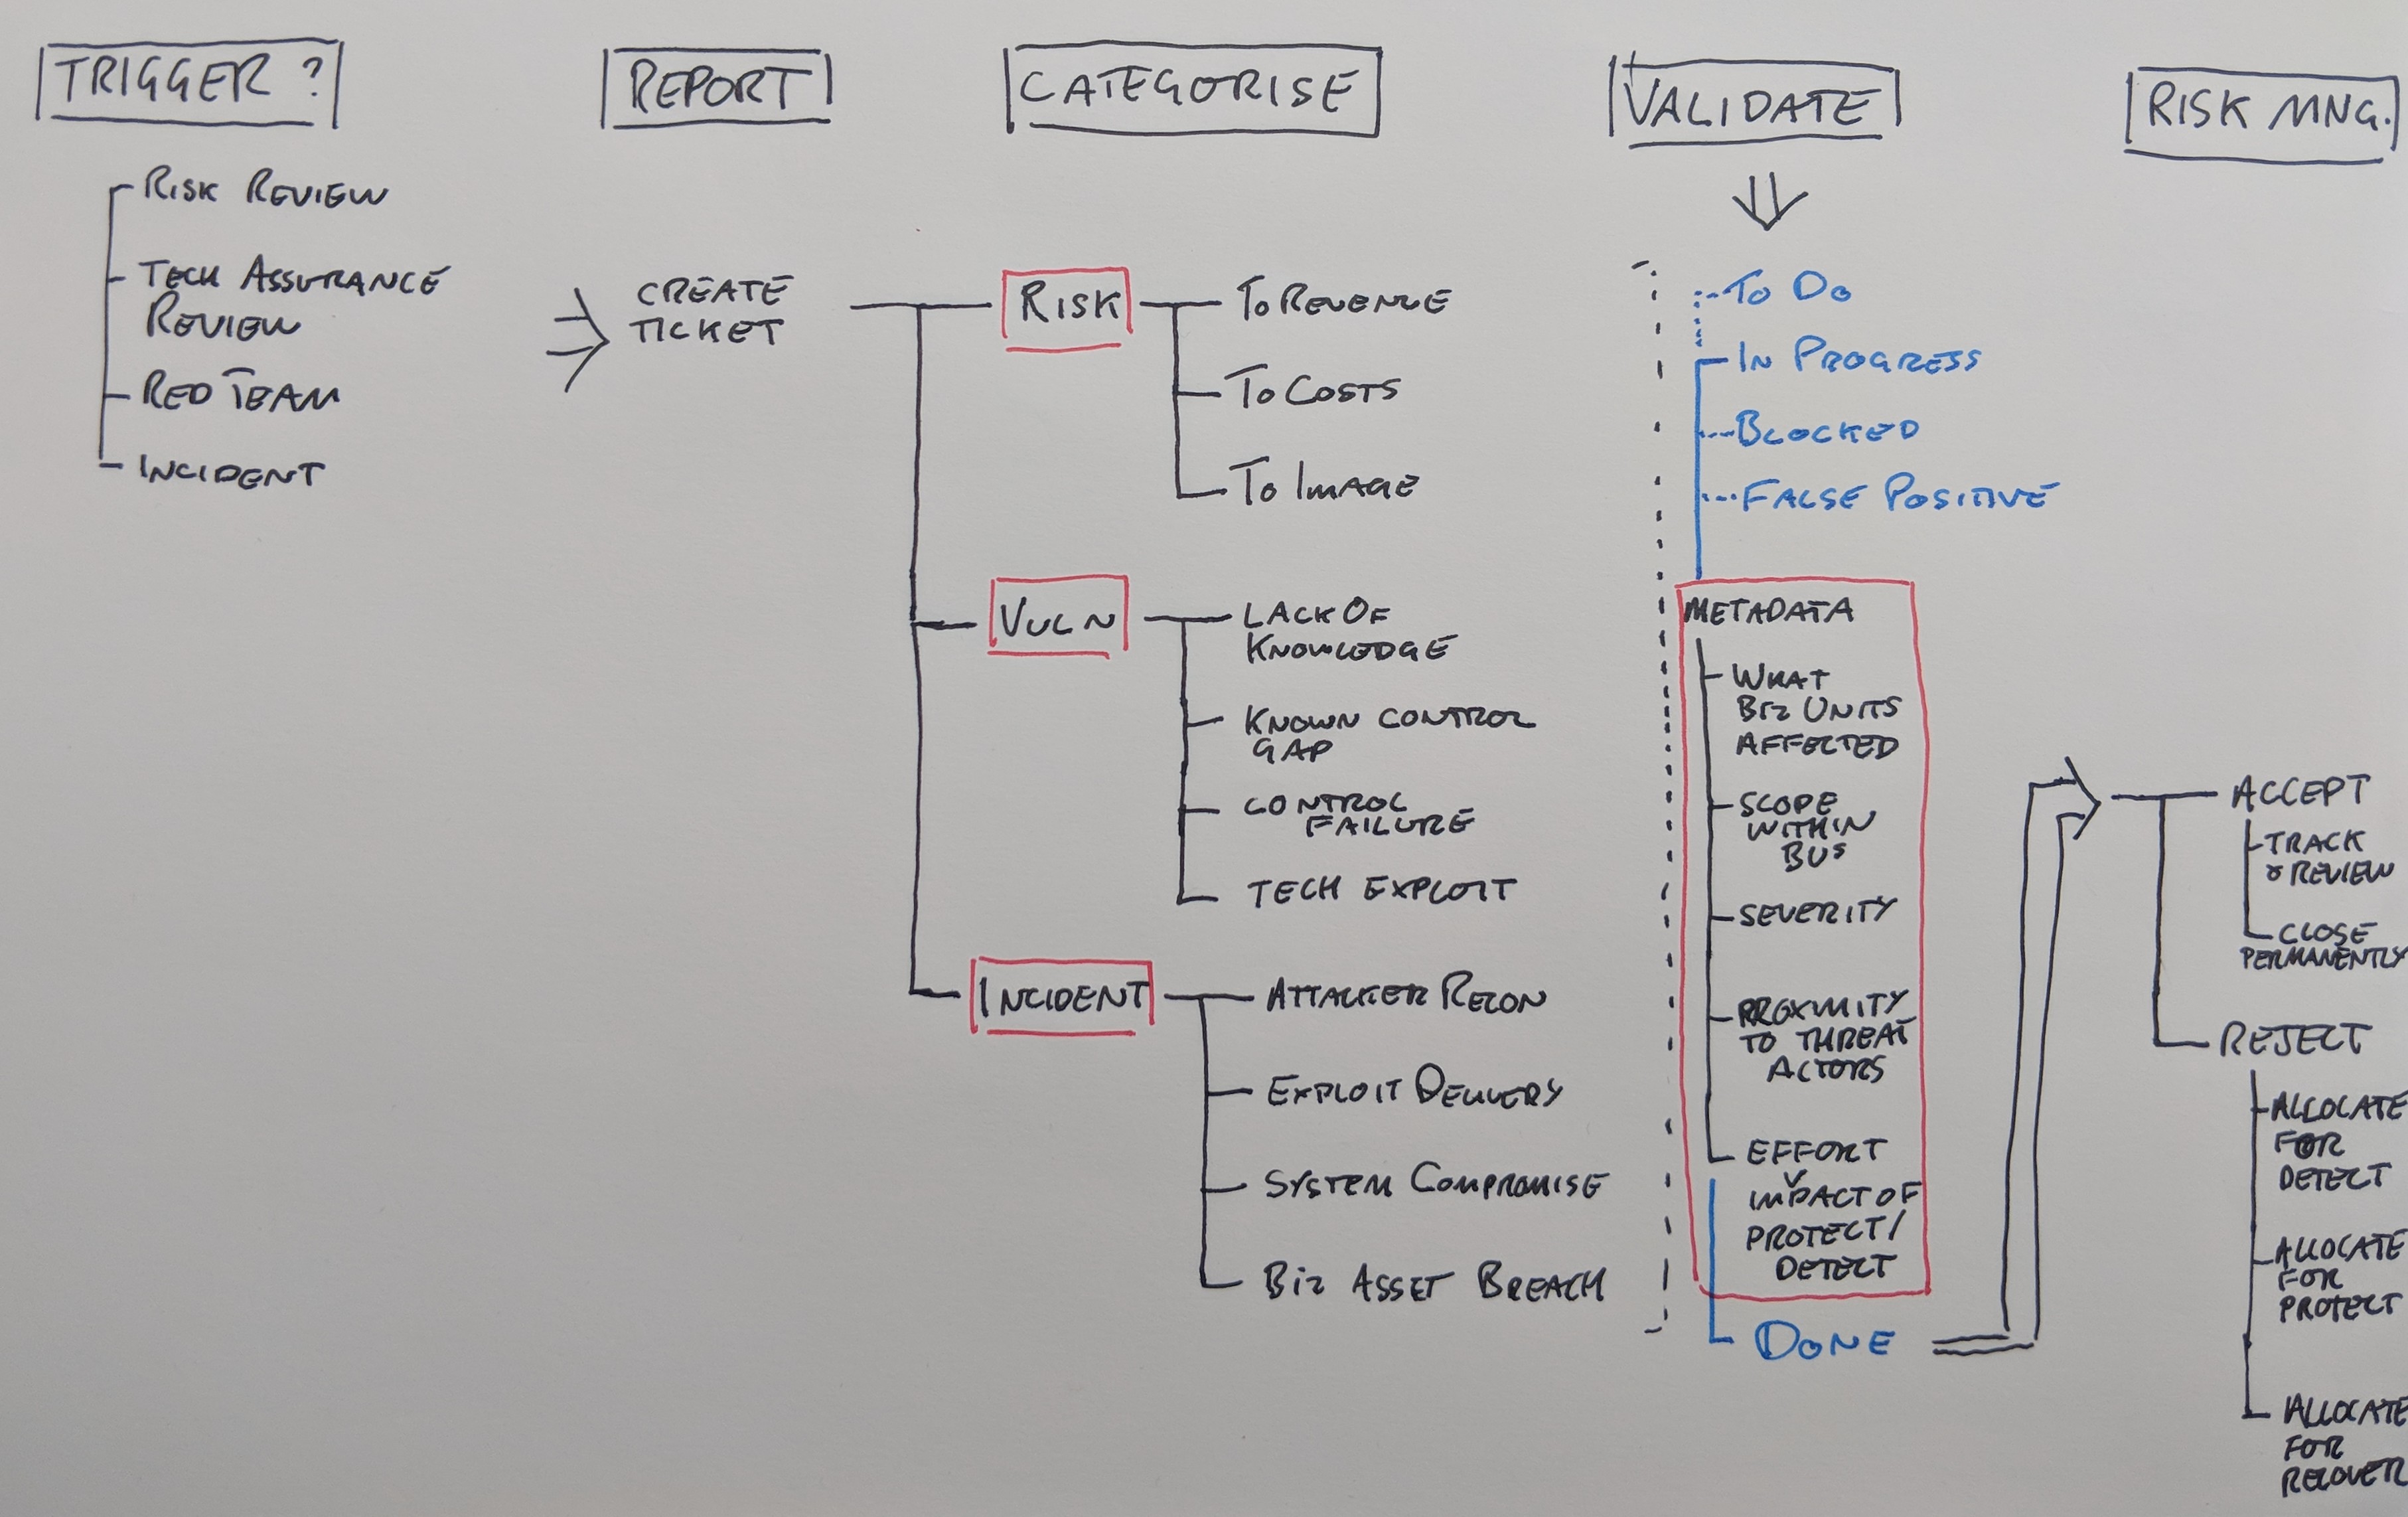 TRIGGER ?
RISK REVIEW
TECH ASSURANCE
REVIEW
RED TEAM
INCIDENT
REPORT
CREATE
TICKET
CATEGORISE
RISK
TO REVENUE
TO COSTS
TO IMAGE
VULN
LACK OF
KNOWLEDGE
KNOWN CONTROL
GAP
CONTROL
FAILURE
TECH EXPLOIT
INCIDENT
ATTACKER RECON
EXPLOIT DELIVERY
SYSTEM COMPROMISE
BIZ ASSET BREACH
VALIDATE
TO DO
IN PROGRESS
BLOCKED
FALSE POSITIVE
METADATA
WHAT
BIZ UNITS
AFFECTED
SCOPE
WITHIN
BUs
SEVERITY
PROXIMITY
TO THREAT
ACTORS
EFFORT
V
IMPACT OF
PROTECT/
DETECT
DONE
RISK MNG.
ACCEPT
TRACK
& REVIEW
CLOSE
PERMANENTLY
REJECT
ALLOCATE
FOR
DETECT
ALLOCATE
FOR
PROTECT
ALLOCATE
FOR
RECOVER